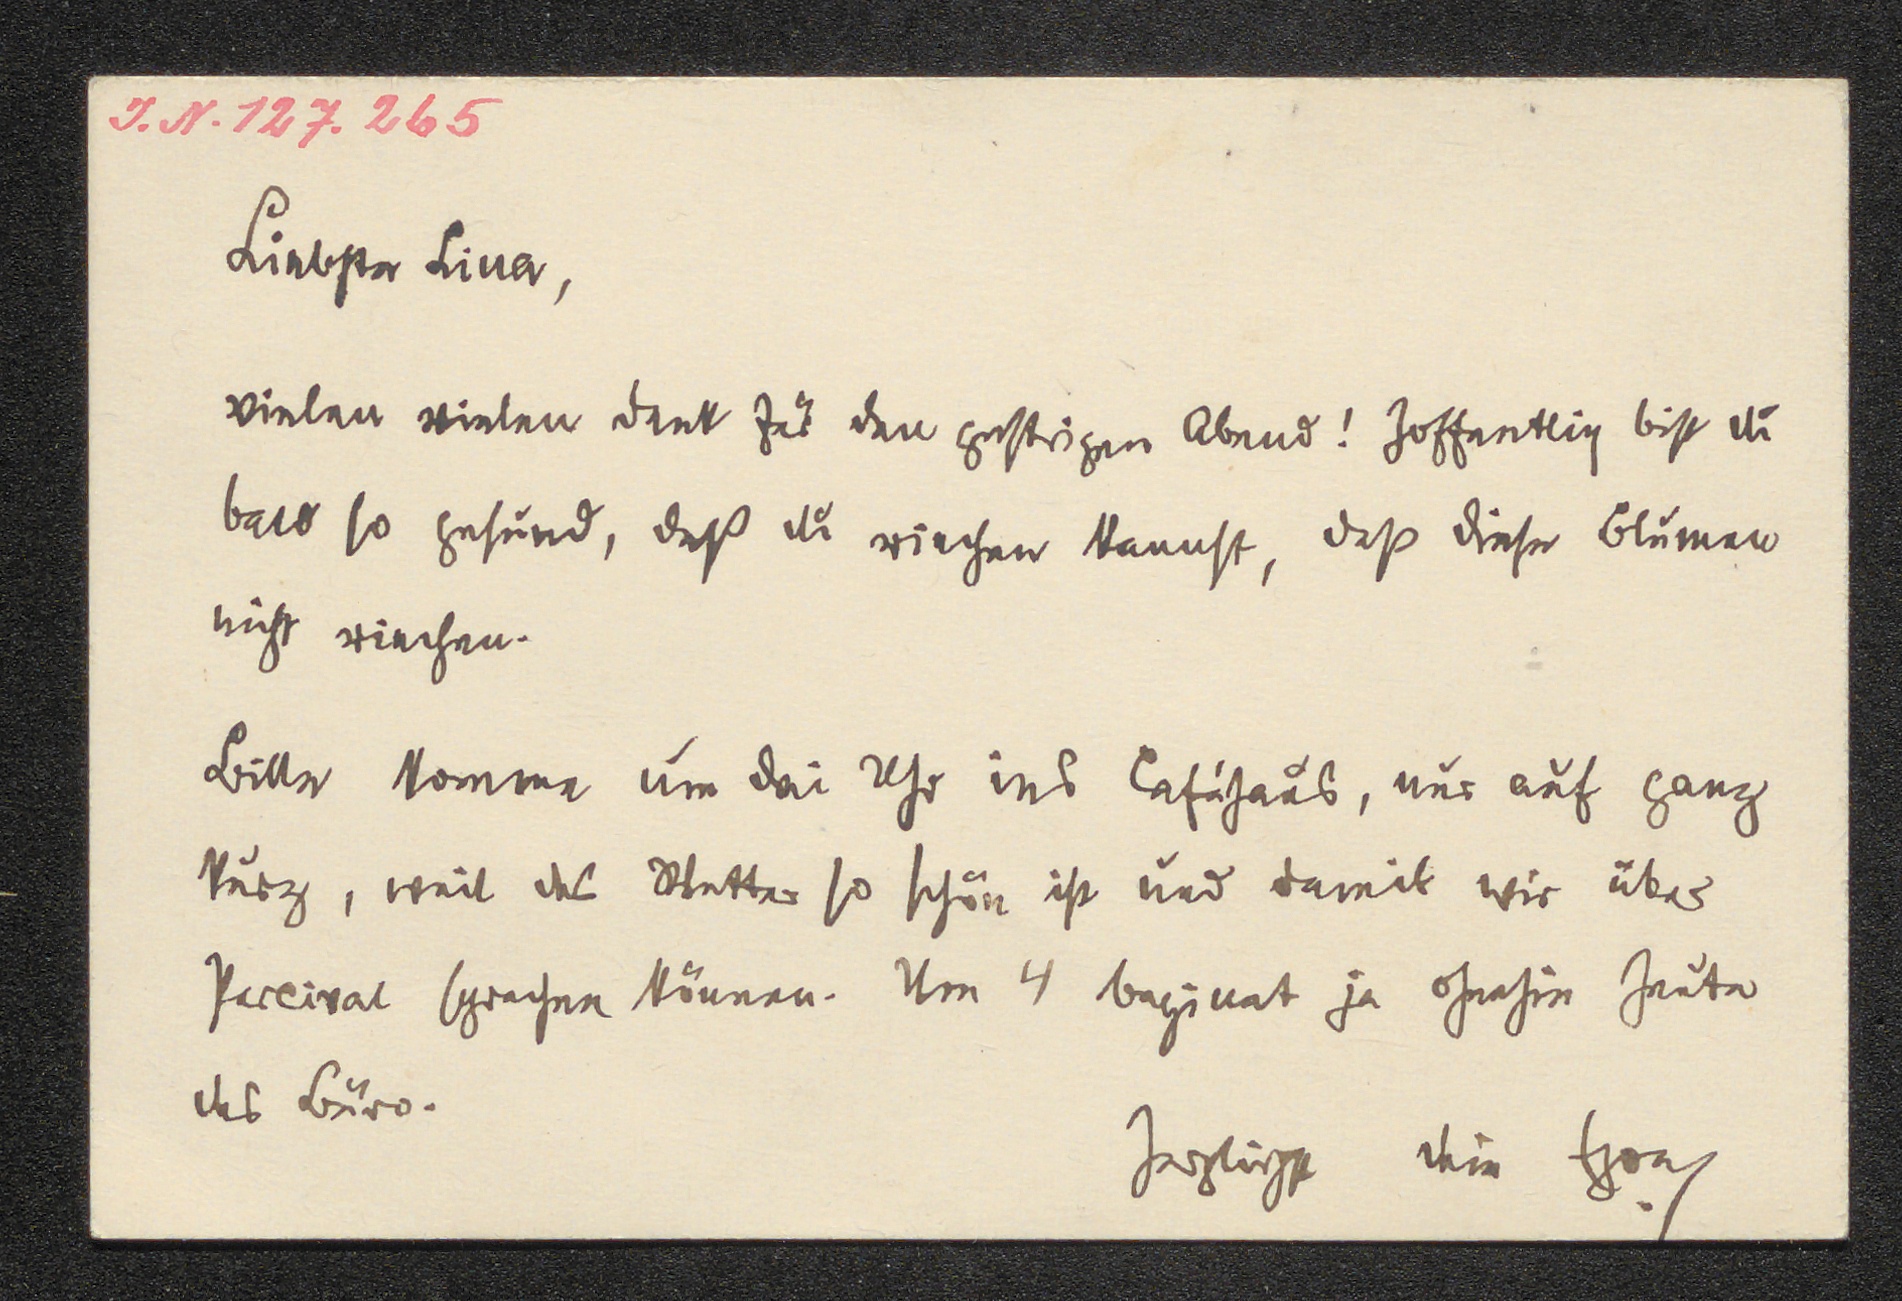 I.N. 127.265
Liebste Lina,
vielen vielen Dank für den gestrigen Abend! Hoffentlich bist du
bald so gesund, daß du riechen kannst, daß diese Blumen
nicht riechen.
Bitte komme um drei Uhr ins Caféhaus, nur auf ganz
kurz, weil das Wetter so schön ist und damit wir über
Parcival sprechen können. Um 4 beginnt ja ohnehin heute
das Büro.
Herzlichst dein